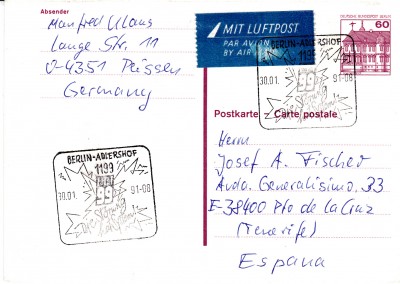 Absender
Manfred Klaus
Lange Str. 11
O-4351 Plissen
Germany
MIT LUFTPOST
PAR AVION
BY AIR
DEUTSCHE BUNDESPOST BERLIN
60
BERLIN-ADLERSHOF
1199
30.01. 91-08
99
Postkarte Carte postale
Herrn
Josef A. Fischer
Avda. Generalisimo. 33
E-38400 Pto de la Cruz
(Tenerife)
Espana
BERLIN-ADLERSHOF
1199
30.01. 91-08
99